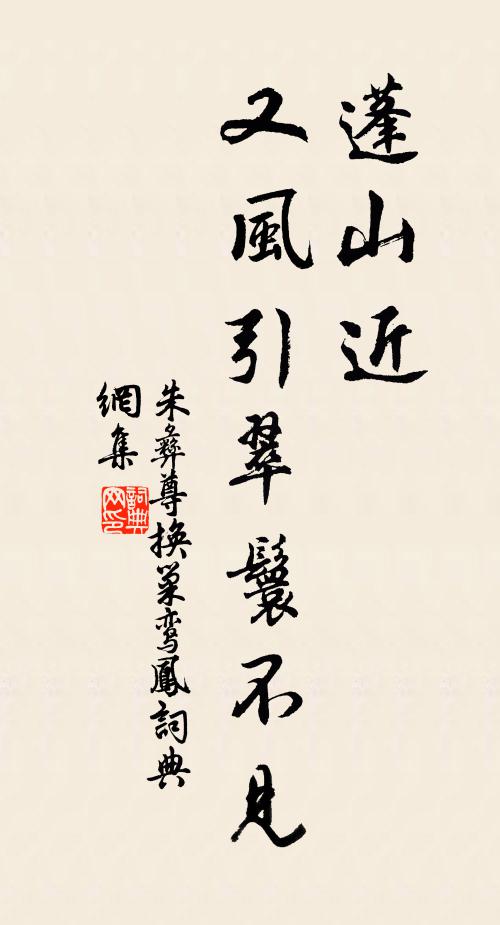 蓬山近
又風引翠鬟不見
朱彝尊換巢鸞鳳詞典
網集
詞典
网印